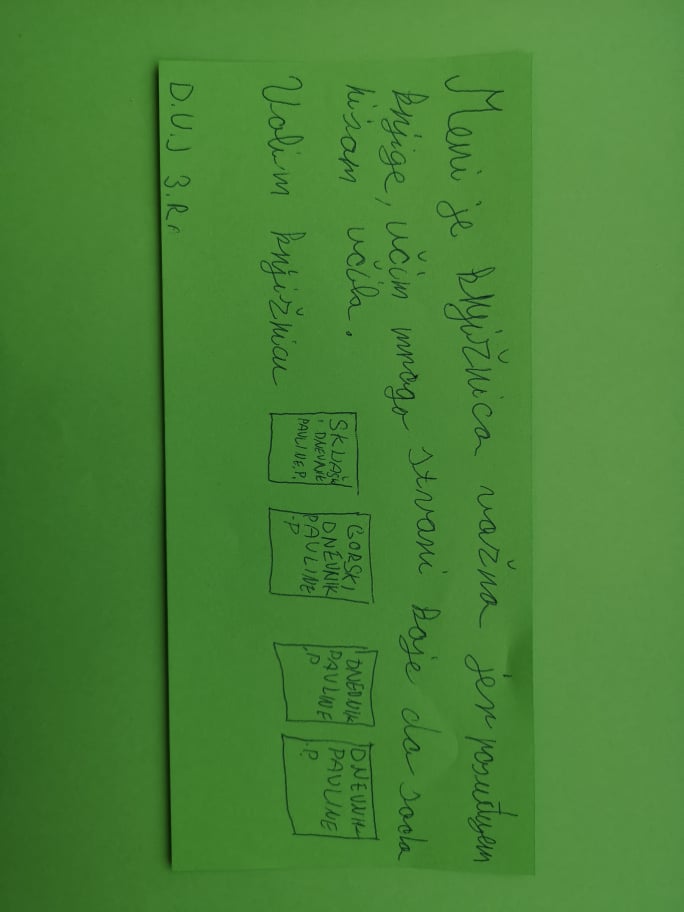 Meni je knjižnica važna jer posuđujem
knjige, učim mnogo stvari koje do sada
nisam učila.
Volim knjižnicu
SKIJAŠK
I DNEVNIK
PAULINE.P.
GORSKI
DNEVNIK
PAULINE
.P
DNEDNIK
PAULINE
.P
DNEVNIK
PAULINE
.P
D.U.J 3.R.